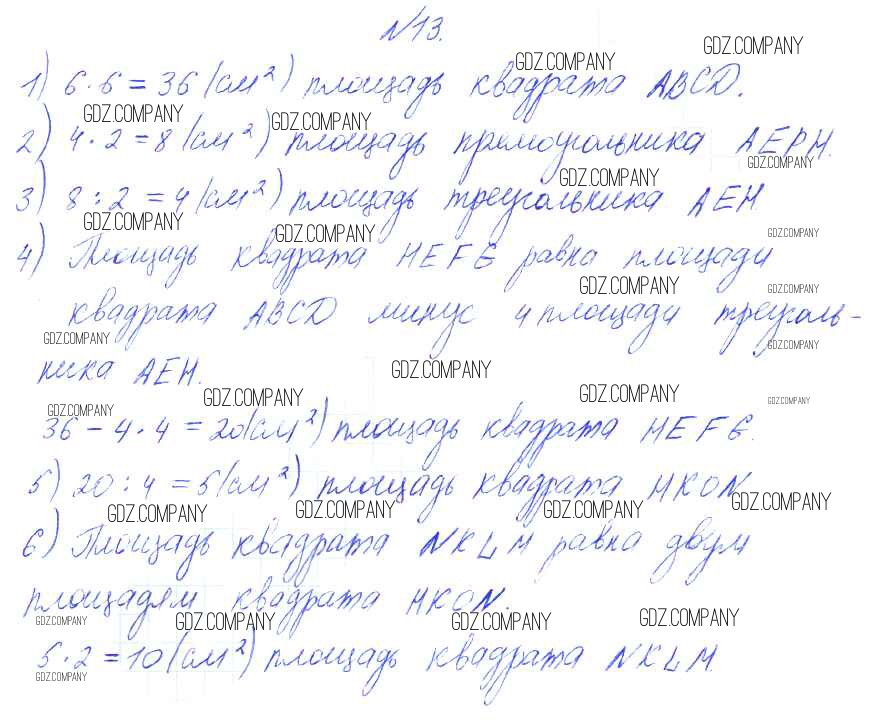 №13.
GDZ.COMPANY
GDZ.COMPANY
1) 6·6 = 36 (см²) площадь квадрата ABCD.
GDZ.COMPANY
GDZ.COMPANY
2) 4·2 = 8 (см²) площадь прямоугольника AEPH.
GDZ.COMPANY
GDZ.COMPANY
3) 8:2 = 4 (см²) площадь треугольника AEH
GDZ.COMPANY
GDZ.COMPANY
GDZ.COMPANY
4) Площадь квадрата HEFG равна площади
GDZ.COMPANY
GDZ.COMPANY
квадрата ABCD минус 4 площади треуголь-
GDZ.COMPANY
GDZ.COMPANY
ника AEH.
GDZ.COMPANY
GDZ.COMPANY
GDZ.COMPANY
GDZ.COMPANY
GDZ.COMPANY
36 - 4·4 = 20 (см²) площадь квадрата HEFG.
5) 20:4 = 5 (см²) площадь квадрата HKON
GDZ.COMPANY
GDZ.COMPANY
GDZ.COMPANY
GDZ.COMPANY
6) Площадь квадрата NKLM равна двум
площадям квадрата HKON.
GDZ.COMPANY
GDZ.COMPANY
GDZ.COMPANY
GDZ.COMPANY
5·2 = 10 (см²) площадь квадрата NKLM.
GDZ.COMPANY